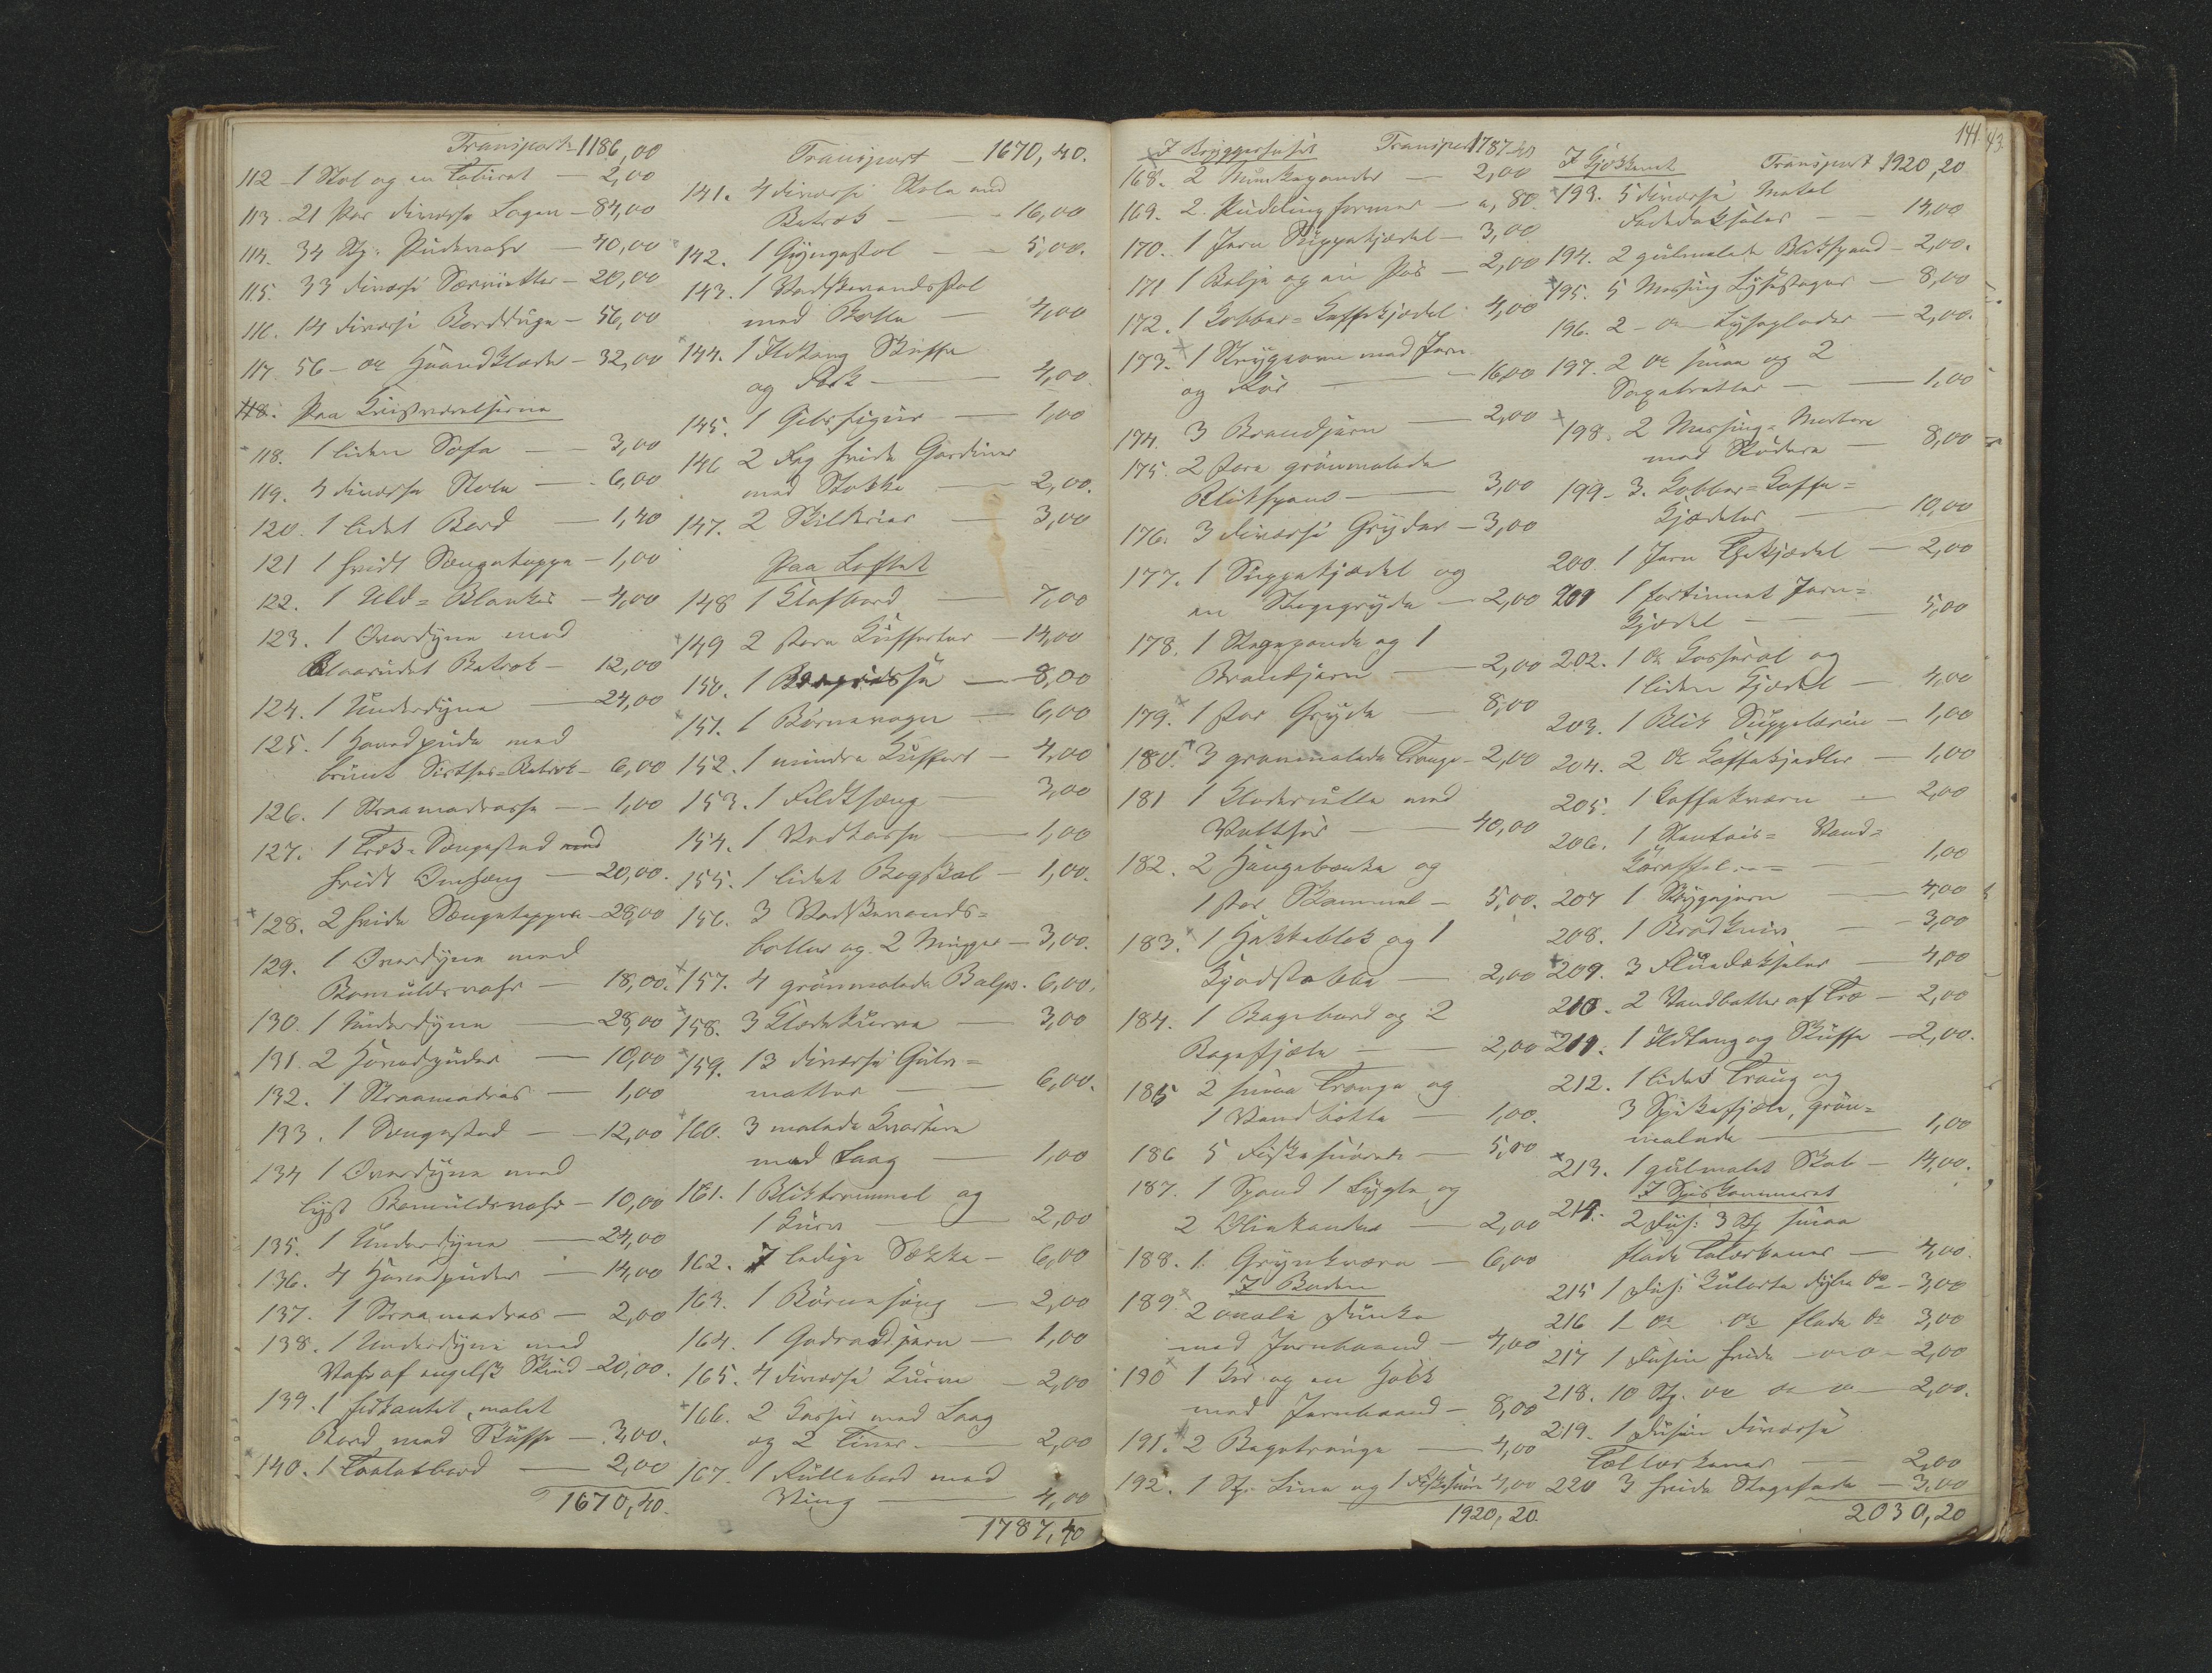 Transport 1186,00
112 1 Stol og en Taburet — 2,00
113. 21 Par diverse Lagen — 84,00
114. 34 St. Pudevahr — 40,00
115. 33 diverse Servietter — 20,00
116. 14 diverse Bordduge — 56,00
117. 56 do Haandklæder — 32,00
118. Paa Kvistværelserne
118. 1 liden Sofa — 3,00
119. 4 diverse Stole — 6,00
120. 1 lidet Bord — 1,40
121 1 hvidt Sengeteppe — 1,00
122. 1 Uld-Blanket — 4,00
123. 1 Overdyne med
Blaarudet Betræk — 12,00
124. 1 Underdyne — 24,00
125. 1 Hovedpude med
brunt Sirtses-Betræk — 6,00
126. 1 Straamadrasse — 1,00
127. 1 Træk-Sengestad med
hvidt Omhæng — 20,00.
128. 2 hvide Sengetepper — 28,00
129. 1 Overdyne med
Bomuldsvahr — 18,00.
130. 1 Underdyne — 28,00
131. 2 Hovedpuder — 10,00
132. 1 Straamadras — 1,00
133. 1 Sengestad — 12,00
134 1 Overdyne med
lyst Bomuldsvahr — 10,00
135. 1 Underdyne — 24,00
136. 4 Hovedpuder — 14,00
137. 1 Straamadras — 2,00
138. 1 Underdyne med
Vahr af engelsk Skind — 20,00.
139. 1 firkantet, malet
Bord med Skuffe — 3,00.
140. 1 Toiletbord — 2,00
1670,40.
Transport — 1670,40.
141. 4 diverse Stole med
Betræk — 16,00
142. 1 Gyngestol — 5,00.
143. 1 Vadskevandsstol
med Bolle — 4,00
144. 1 Ildtang Skuffe
og Fork — 4,00.
145. 1 Gibsfigur — 1,00
146 2 Fag hvide Gardiner
med Stokke — 2,00.
147. 2 Skilderier — 3,00
Paa Loftet
148 1 Klafbord — 7,00
149 2 store Kufferter — 14,00
150. 1 — 8,00
151. 1 Børnevogn — 6,00
152. 1 mindre Kuffert — 4,00
153. 1 Feldtseng — 3,00
154. 1 Vedkasse — 1,00
155. 1 lidet Bogskab — 1,00.
156. 3 Vadskevands-
boller og 2 Mugger — 3,00.
157. 4 grønmalede Baljer. 6,00.
158. 3 Klædekurve — 3,00
159. 13 diverse Gulv-
matter — 6,00.
160. 3 malede Kvarterer
med Laag — 1,00
161. 1 Bliktrommel og
1 Kurv — 2,00
162. 7 ledige Sække — 6,00
163. 1 Børneseng — 2,00
164. 1 Goderaadjern — 1,00
165. 4 diverse Kurve — 2,00
166. 2 Kasser med Laag
og 2 Tiner — 2,00
167. 1 Rullebord med
Ving — 4,00
1787,40
141 43
I Bryggerhuset Transport 1787,40
168. 2 Munkepander — 2,00
169. 2 Puddingformer — 0,80.
170. 1 Jern Suppekjedel — 3,00
171 1 Balje og en Pøs — 2,00
172. 1 Kobber-Kaffekjedel 4,00
173. 1 Strygeovn med Jern
og Rør — 16,00
174. 3 Brandjern — 2,00
175. 2 store grønmalede
Blikspand — 3,00
176. 3 diverse Gryder — 3,00
177. 1 Suppekjedel og
en Stegegryde — 2,00
178. 1 Stegepande og 1
Brandjern — 2,00
179. 1 stor Gryde — 8,00
180. 3 grønmalede Trauge — 2,00
181 1 Klæderulle med
Volthøi — 40,00
182. 2 Hængebænke og
1 stor Skammel — 5,00.
183. 1 Hakkeblok og 1
Kjødstabbe — 2,00
184. 1 Bagebord og 2
Bagefjæle — 2,00
185 2 smaa Trauge og
1 Vandbøtte — 1,00.
186 5 Fiskesnører — 5,00
187. 1 Spand 1 Lygte og
2 Oliekander — 2,00
188. 1 Grynkværn — 6,00
I Boden
189 2 ovale Dunke
med Jernbaand — 4,00
190 1 Kar og en Holk
med Jernbaand — 8,00
191. 2 Bagetrauge — 4,00
192. 1 St. Line og 1 Fiskesnøre 4,00
1920,20.
I Kjøkkenet Transport 1920,20
193. 5 diverse Metal
Fadedæksler — 14,00
194. 2 gulmalede Blikspand — 2,00.
195. 5 Messing Lysestager — 8,00
196. 2 do Lyseplader — 2,00.
197. 2 do smaa og 2
Sagatratter — 1,00
198. 2 Messing-Mortere
med Stødere — 8,00
199. 3. Kobber-Kaffe-
kjedeler — 10,00
200. 1 Jern Thekjedel — 2,00
201 1 fortinnet Jern-
Kjedel — 5,00
202. 1 do Kasserol og
1 liden Kjedel — 4,00
203. 1 Blik Suppeterrin — 1,00
204. 2 do Kaffekjedler — 1,00
205. 1 Kaffekværn — 2,00
206. 1 Stentøis- Vand-
Karaffel — 1,00
207 1 Strygejern — 4,00
208. 1 Brødkniv — 3,00
209. 3 Fluedæksler — 4,00
210. 2 Vandbøtter af Træ — 2,00
211. 1 Ildtang og Skuffe — 2,00.
212. 1 lidet Traug og
3 Spekefjæle, grøn-
malede — 1,00
213. 1 gulmalet Skab — 14,00.
I Spiskammeret
214. 2 Dus: 3 St. smaa
flade Talerkener — 4,00.
215 1 Dus: Kulørte dybe do — 3,00
216 1 do do flade do 3,00
217 1 Dusin hvide do — 2,00
218. 10 St. do do — 2,00.
219. 1 Dusin diverse
Tallerkener — 2,00
220 3 hvide Stegefade — 3,00
2030,20